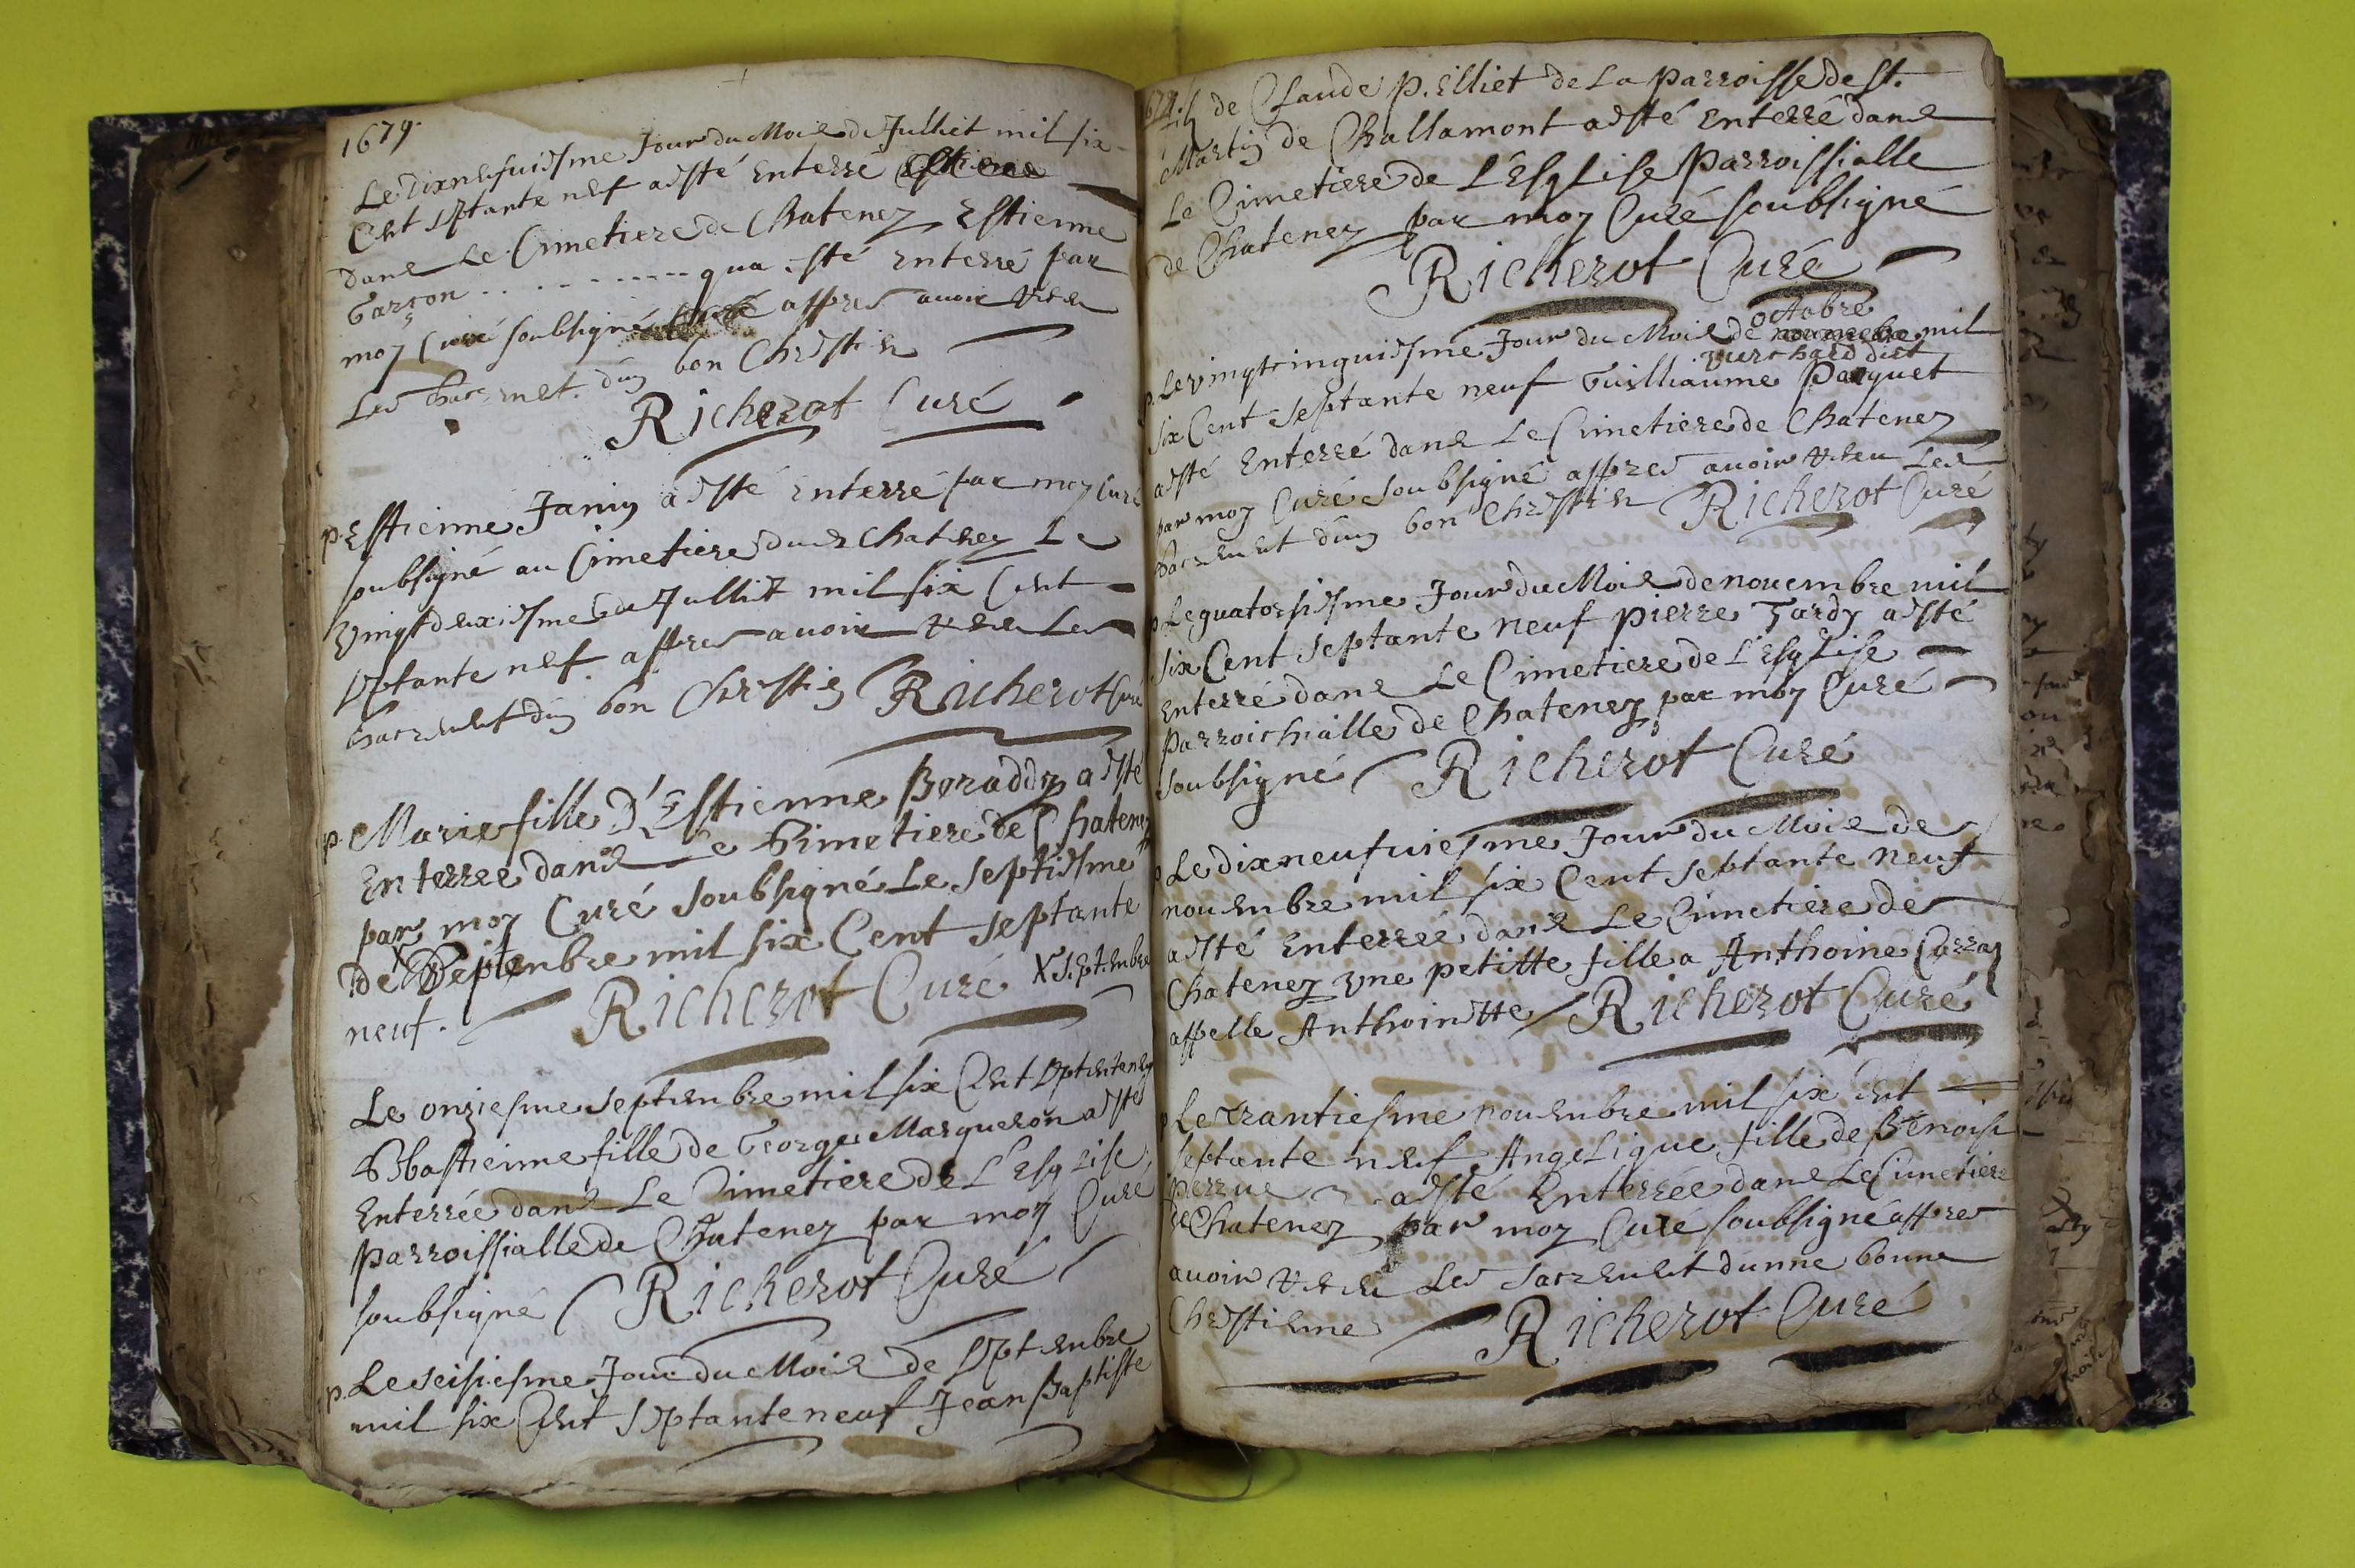 1679.
Le dixneufuiesme Jour du Mois de Julliet mil six
Cent septante nef a esté Enterré
dans Le Cimetiere de Chatenez Estienne
Garson . . . . . . . . . qua esté Enterré par
moy Curé soubsigné appres auoir
Les d'un bon Chrestien
Richerot Curé
p. Estienne Janin a esté Enterré par moy Curé
soubsigné au Cimetiere dud Chatenez Le
vingtdeuxiesme de Julliet mil six Cent
septante nef appres auoir Les
Sacrement d'un bon Chrestien Richerot Curé
p. Marie fille D'Estienne a esté
Enterree dans Le Cimetiere de Chatenez
par moy Curé soubsigné Le septiesme
de Septembre mil six Cent septante
neuf. Richerot Curé X Septembre
Le onziesme Septembre mil six Cent septente neuf
Sebastienne fille de George Marqueron a esté
Enterrée dans Le Cimetiere de L'Esglise
parroissialle de Chatenez par moy Curé
soubsigné Richerot Curé
p. Le seisiesme Jour du Mois de Septembre
mil six Cent septante neuf Jean Baptiste
fils de Claude Pelliet de La parroisse de St.
Martin de Challamont a esté Enterré dans
Le Cimetiere de L'Esglise Parroissialle
de Chatenez par moy Curé soubsigné
Richerot Curé
octobre
p. Le vingtcinquiesme Jour du Mois de nouuembre mil
dict
six Cent septante neuf Guilliaume Paquet
a esté Enterré dans Le Cimetiere de Chatenez
par moy Curé soubsigné appres auoir Les
Sacrement d'un bon Chrestien Richerot Curé
p. Le quatorsiesme Jour du Mois de nouembre mil
six Cent septante neuf pierre Tardy a esté
Enterré dans Le Cimetiere de L'Esglise
parroichialle de Chatenez par moy Curé
soubsigné Richerot Curé
p Le dixneufuiesme Jour du Mois de
nouembre mil six Cent septante neuf
a esté Enterrée dans Le Cimetiere de
Chatenez une petitte fille a Anthoine
appelle Anthoinette Richerot Curé
p Le trantiesme nouembre mil six Cent
septante neuf Angelique fille de Benoist
a esté Enterrée dans Le Cimetiere
de Chatenez par moy Curé soubsigné appres
auoir Les Sacrement dunne bonne
Chrestienne Richerot Curé